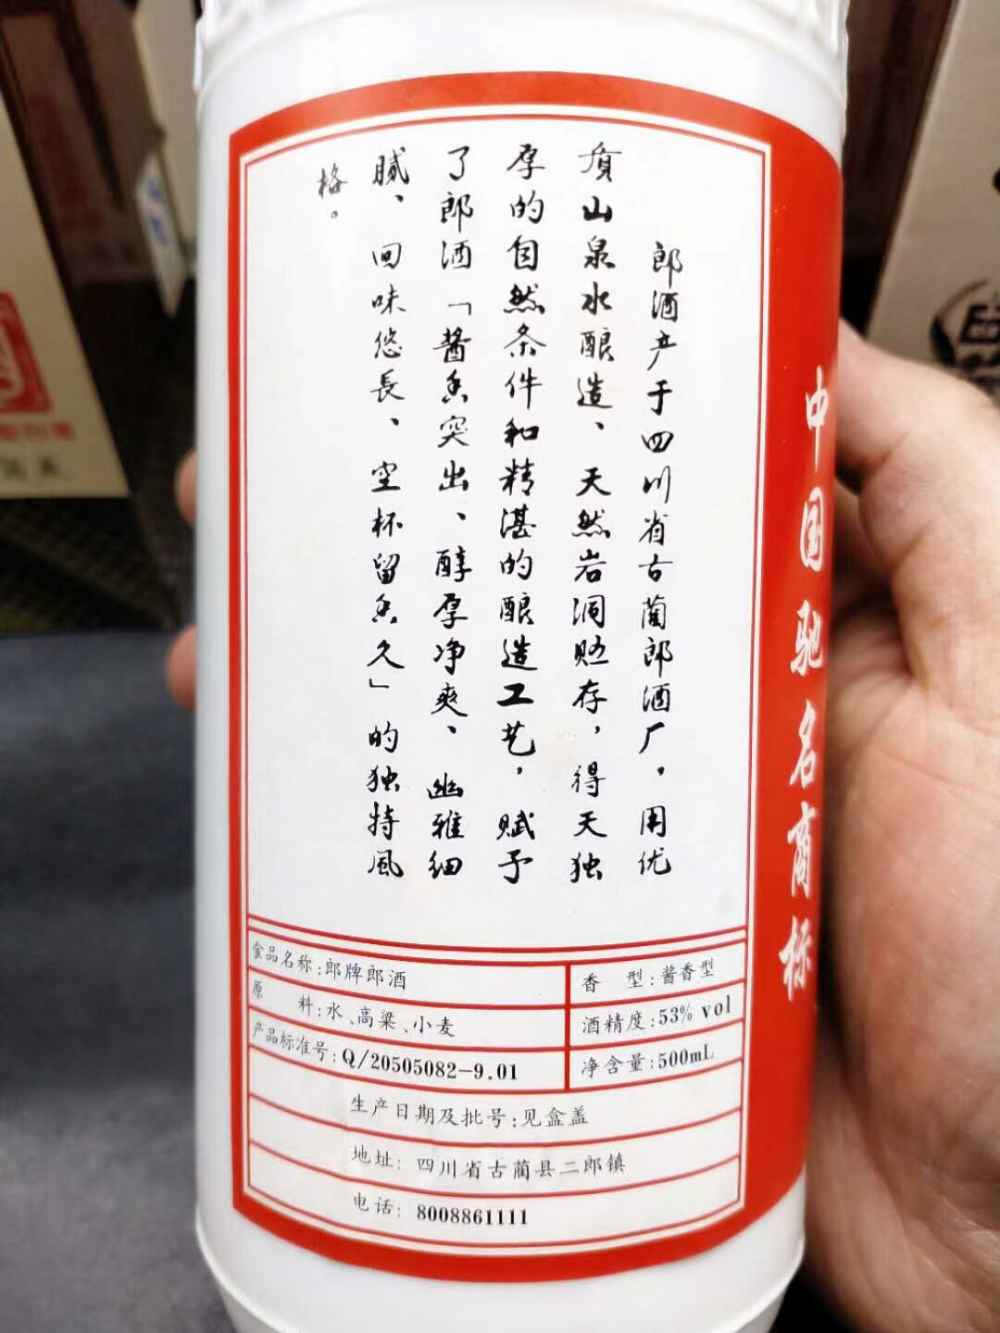 郎酒产于四川省古蔺郎酒厂，用优
质山泉水酿造、天然岩洞贮存，得天独
厚的自然条件和精湛的酿造工艺，赋予
了郎酒「酱香突出、醇厚净爽、幽雅细
腻、回味悠長、空杯留香久」的独特風
格。
中国驰名商标
食品名称:郎牌郎酒
香 型:酱香型
原 料:水、高粱、小麦
酒精度:53% vol
产品标准号:Q/20505082-9.01
净含量:500mL
生产日期及批号:见盒盖
地址: 四川省古蔺县二郎镇
电话: 8008861111